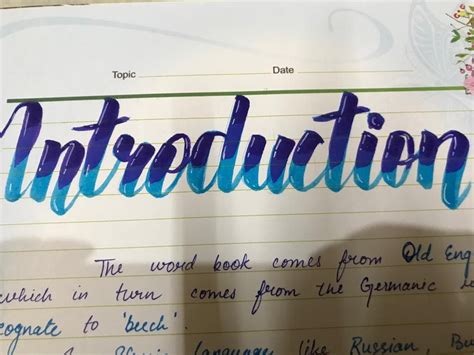 Topic Date
Introduction
The word book comes from Old Eng
which in turn comes from the Germanic
cognate to 'beech'.
languages like Russian, Bu